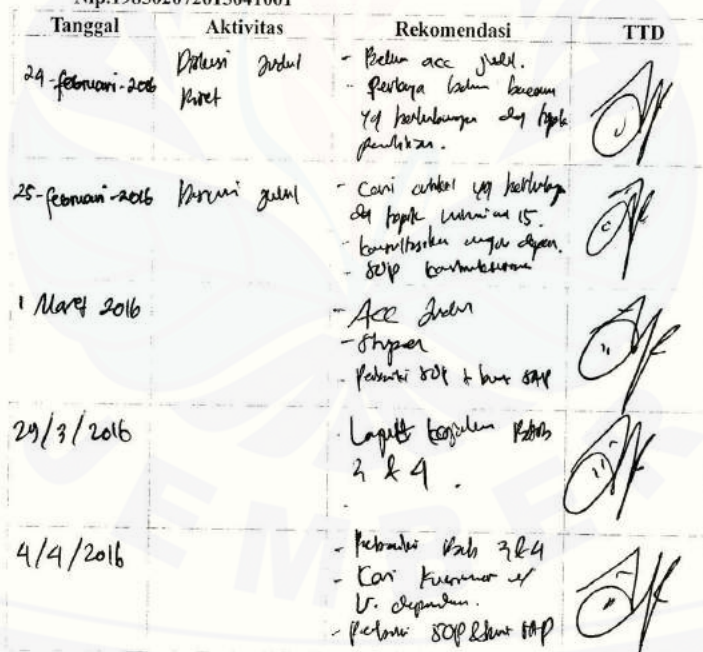 Nip.198302072015041001
Tanggal Aktivitas Rekomendasi TTD
24-februari-2016 Diskusi Judul - Belum acc judul.
Riset - Perbanyak bahan bacaan
yg berhubungan dg topik
penelitian.
25-februari-2016 Diskusi judul - Cari artikel yg berhubungan
dg topik minimal 15.
- konsultasikan minggu depan.
- SOP
1 Maret 2016 - Acc Judul
-
- Perbaiki SOP & buat SAP
29/3/2016 - Lanjut BAB
3 & 4.
4/4/2016 - Perbaiki Bab 3 & 4
- Cari kuesioner u/
V. dependen.
- Perbaiki SOP & buat SAP
JEMBER